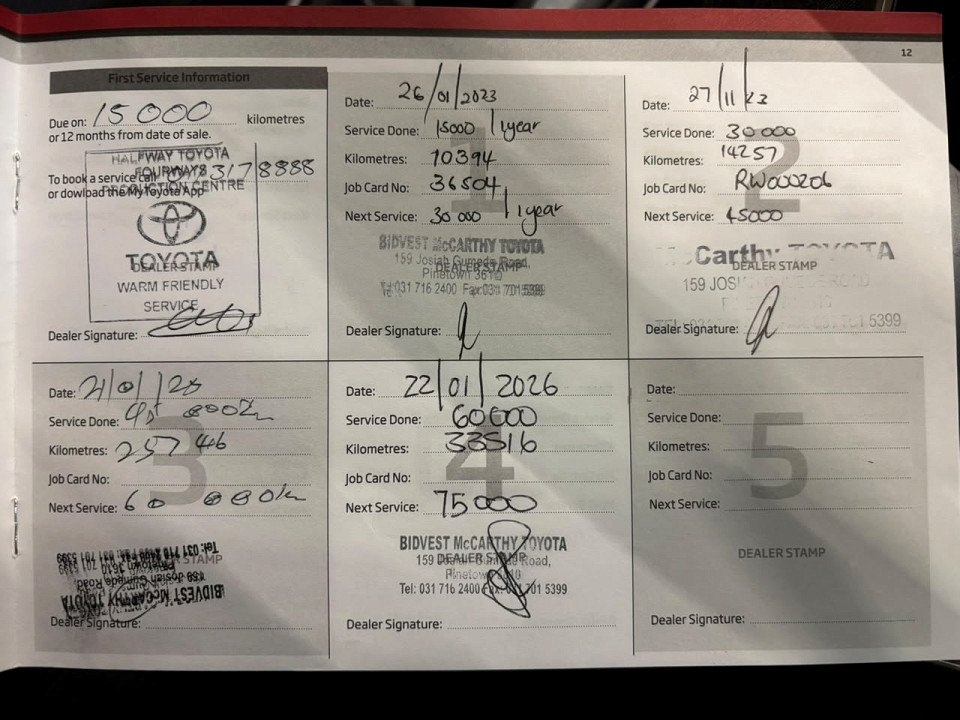 12
First Service Information
Due on: 15 000 kilometres
or 12 months from date of sale.
To book a service call
or dowlbad the MyToyota App
HALFWAY TOYOTA
FOURWAYS
PRODUCTION CENTRE
TOYOTA
DEALER STAMP
WARM FRIENDLY
SERVICE
Dealer Signature:
1
Date: 26/01/2023
Service Done: 15000 / 1year
Kilometres: 10394
Job Card No: 36504
Next Service: 30 000 / 1year
BIDVEST McCARTHY TOYOTA
159 Josiah Gumede Road,
DEALER STAMP
Pinetown 3610
Tel: 031 716 2400 Fax: 031 701 5399
Dealer Signature:
2
Date: 27/11/23
Service Done: 30000
Kilometres: 14257
Job Card No: RW000206
Next Service: 45000
Carthy TOYOTA
DEALER STAMP
159 JOSI
701 5399
Dealer Signature:
3
Date:
Service Done:
Kilometres: 25746
Job Card No:
Next Service: 60 000km
BIDVEST McCARTHY TOYOTA
159 Josiah Gumede Road
Pinetown 3610
Tel: 031 716 2400 Fax: 031 701 5399
STAMP
Dealer Signature:
4
Date: 22/01/2026
Service Done: 60000
Kilometres: 33516
Job Card No:
Next Service: 75000
BIDVEST McCARTHY TOYOTA
DEALER STAMP
159 Josiah Gumede Road,
Pinetown 3610
Tel: 031 716 2400 Fax: 031 701 5399
Dealer Signature:
5
Date:
Service Done:
Kilometres:
Job Card No:
Next Service:
DEALER STAMP
Dealer Signature: